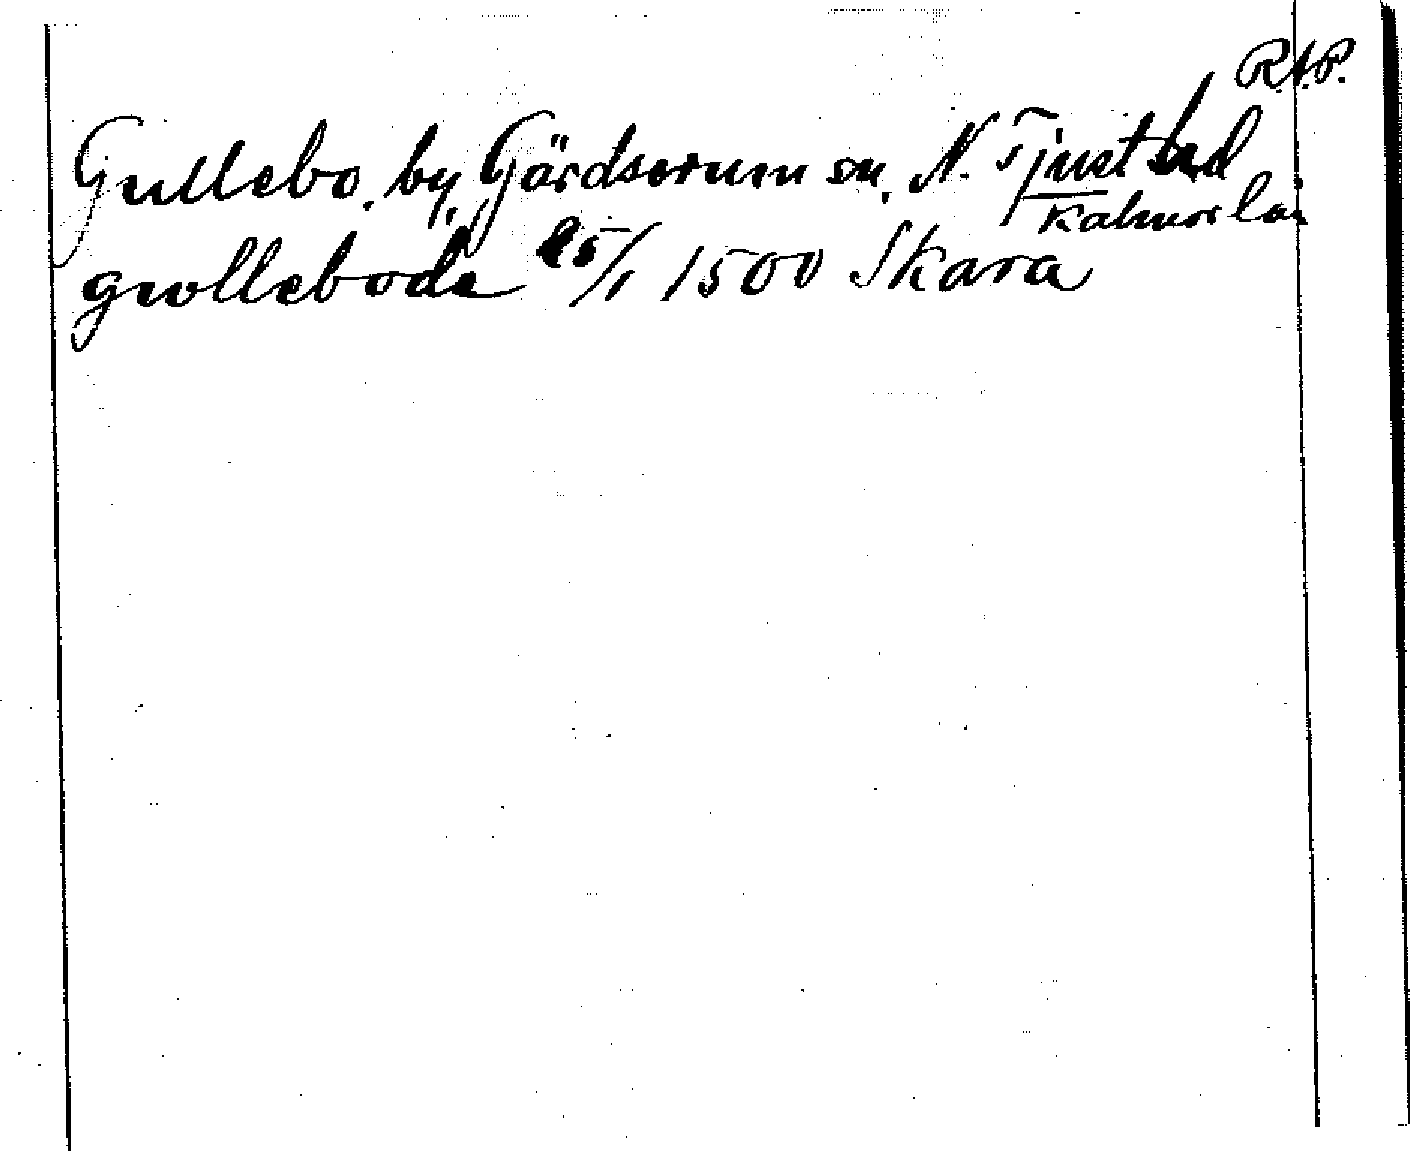 R.A.P.
Gullebo, by, Gärdserum sn, N. Tjust hd
Kalmar län
gwllebode 25/1 1500 Skara